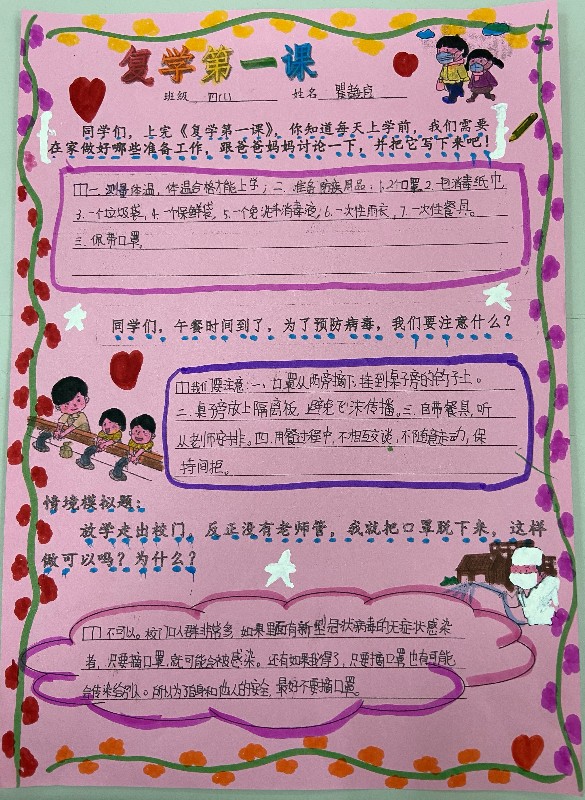 复学第一课
班级 四(1) 姓名 瞿静
同学们，上完《复学第一课》，你知道每天上学前，我们需要
在家做好哪些准备工作，跟爸爸妈妈讨论一下，并把它写下来吧！
一、测量体温，体温合格才能上学；二、准备防疫用品：1.2个口罩，2.一包消毒纸巾，
3.一个垃圾袋，4.一个保鲜袋，5.一个免洗手消毒液，6.一次性雨衣，7.一次性餐具。
三、佩带口罩。
同学们，午餐时间到了，为了预防病毒，我们要注意什么？
我们要注意：一、口罩从两旁摘下，挂到桌子旁的钩子上。
二、桌子旁放上隔离板，避免飞沫传播。三、自带餐具，听
从老师安排。四、用餐过程中，不相互交谈，不随意走动，保
持间把。
情境模拟题：
放学走出校门，反正没有老师管，我就把口罩脱下来，这样
做可以吗？为什么？
不可以。校门口人群非常多，如果里面有新型冠状病毒的无症状感染
者，只要摘口罩，就可能会被感染。还有如果我得了，只要摘口罩也有可能
会传染给别人。所以为了自身和他人的安全，最好不要摘口罩。